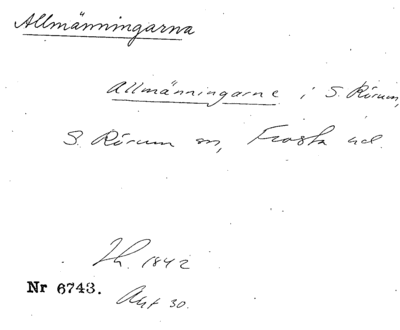 Allmänningarna
Allmänningarne i S. Rörum,
S. Rörum sn, Frosta hd.
1842
Nr 6743. Akt 30.